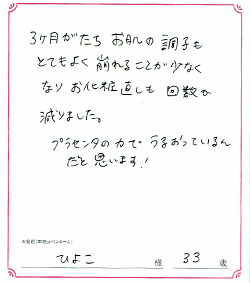 3ヶ月がたち お肌の調子も
とてもよく 崩れることが少なく
なり お化粧直しも 回数も
減りました。
プラセンタの力で うるおっているん
だと 思います!
お名前(本名orペンネーム)
ひよこ 様 33 歳